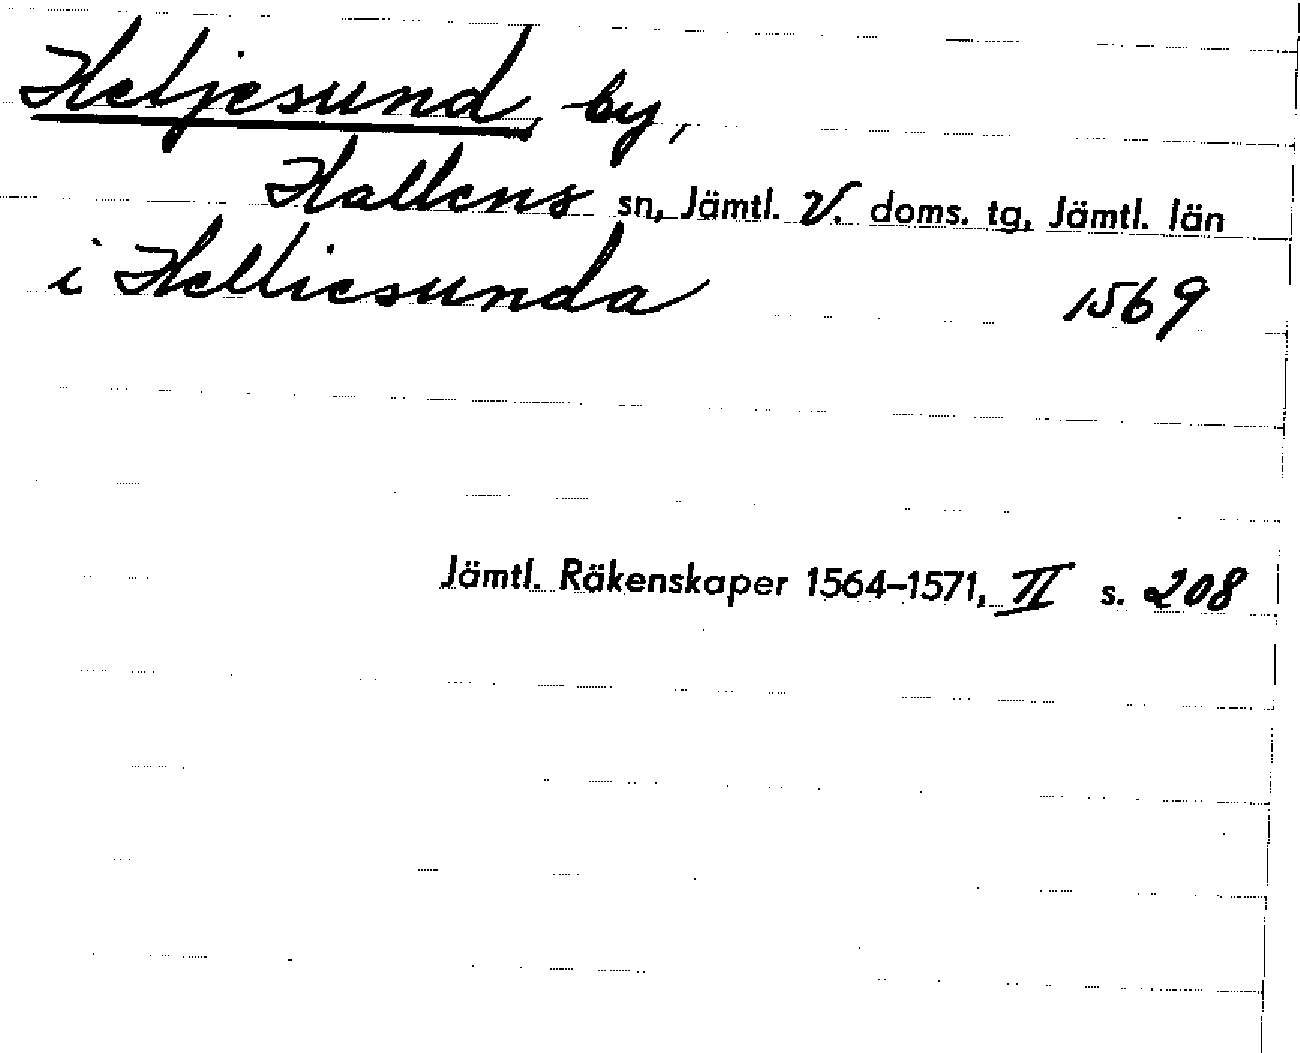 Heljesund by,
Hallens sn, Jämtl. V. doms. tg, Jämtl. län
i Helliesunda 1569
Jämtl. Räkenskaper 1564–1571, II s. 208